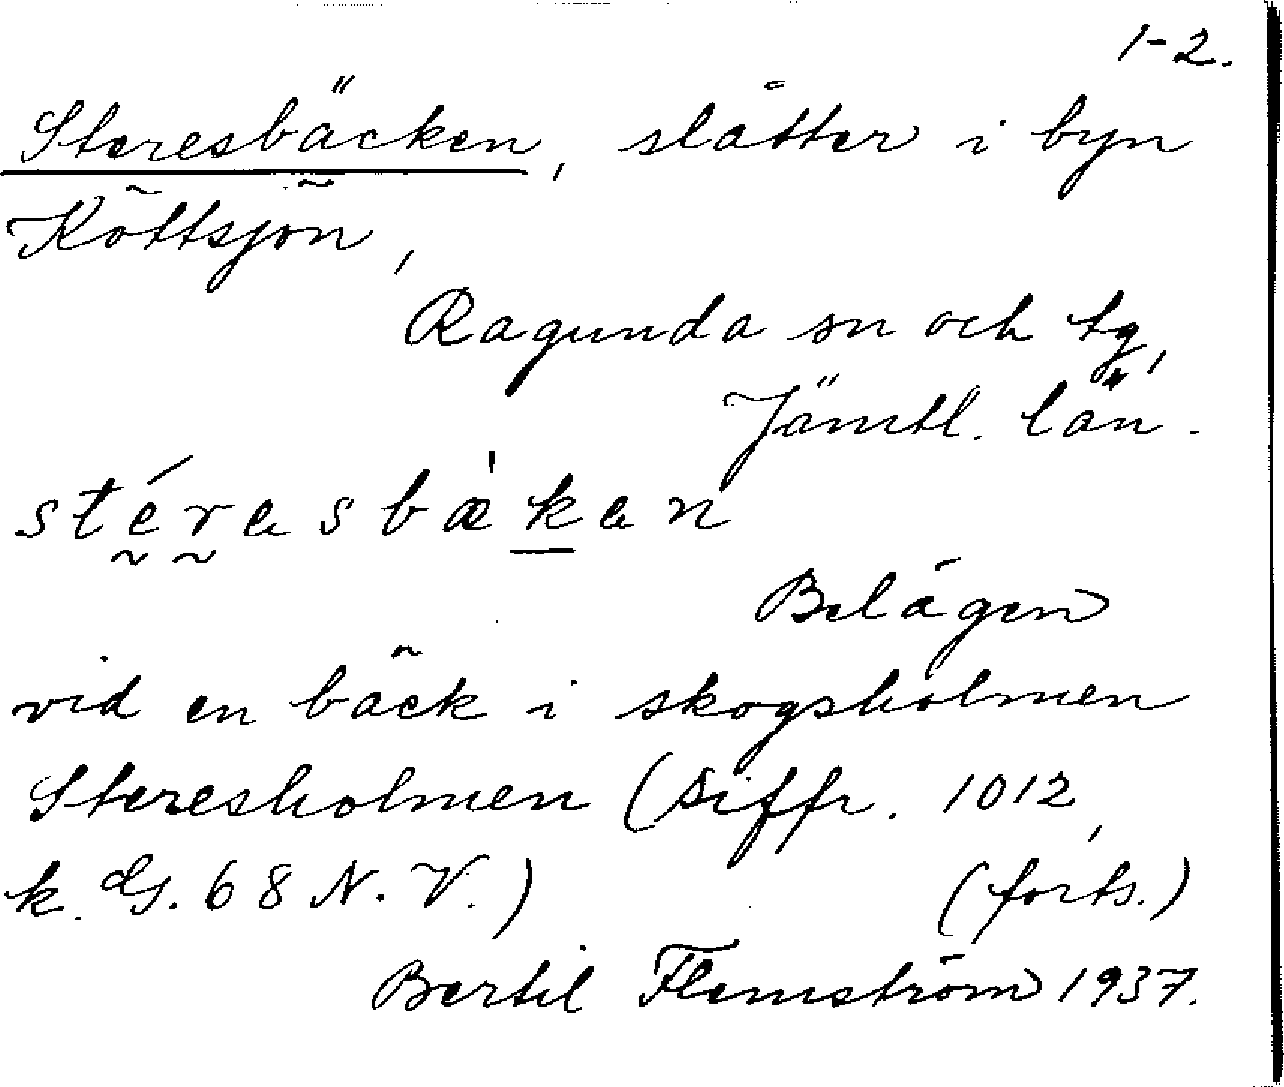 1-2.
Steresbäcken, slåtter i byn
Köttsjön,
Ragunda sn och tg,
Jämtl. län.
stérasbækan
Belägen
vid en bäck i skogsholmen
Steresholmen (siffr. 1012,
k. G. 68 N.V.) (forts.)
Bertil Flemström 1937.